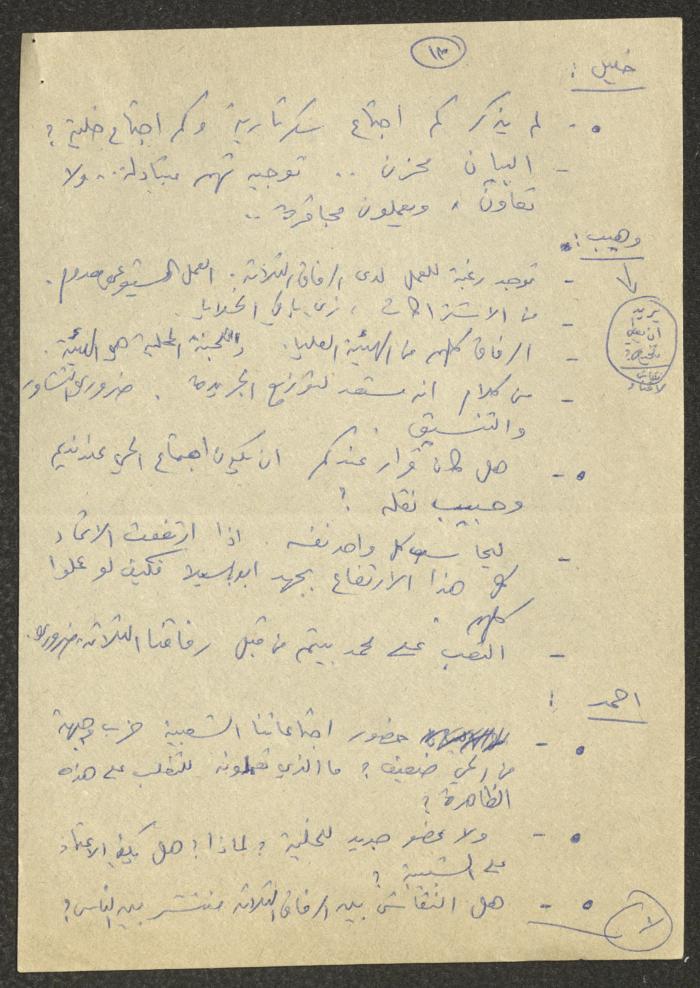 ١٣
خليل :
- لم يذكر كم اجتماع سكرتارية وكم اجتماع خلية ؟
- البيان محزن .. توجيه تهم متبادلة .. ولا
تعاون ، ويعملون مجاقرة ..
وهيب :
- توجد رغبة للعمل لدى الرفاق الثلاثة . العمل الشيوعي معدوم .
- من الاشتراكات ، زي باقي الخلايا .
- الرفاق كلهم من الهيئة العليا . واللجنة المحلية هي الهيئة .
- من كلام انه مستعد لتوزيع الجريدة . ضروري التشاور
والتنسيق .
يريد
ان
- هل كان قرار عندكم ان يكون اجتماع الحي عند نديم
وحبيب نقله ؟
- ليحاسب كل واحد نفسه . اذا ارتفعت الاتحاد
كل هذا الارتفاع بجهد ابو فكيف لو عملوا
كلهم .
- التعب على محمد بيتم من قبل رفاقنا الثلاثة، ضروري .
احمد :
- حضور اجتماعاتنا الشعبية حزب وجبهة
من الحي ضعيف ؟ ما الذي تعملونه للتغلب على هذه
الظاهرة ؟
- ولا عضو جديد للخلية ؟ لماذا ؟ هل يكفي الاعتماد
على الشبيبة ؟
- هل النقاش بين الرفاق الثلاثة منتشر بين الناس ؟